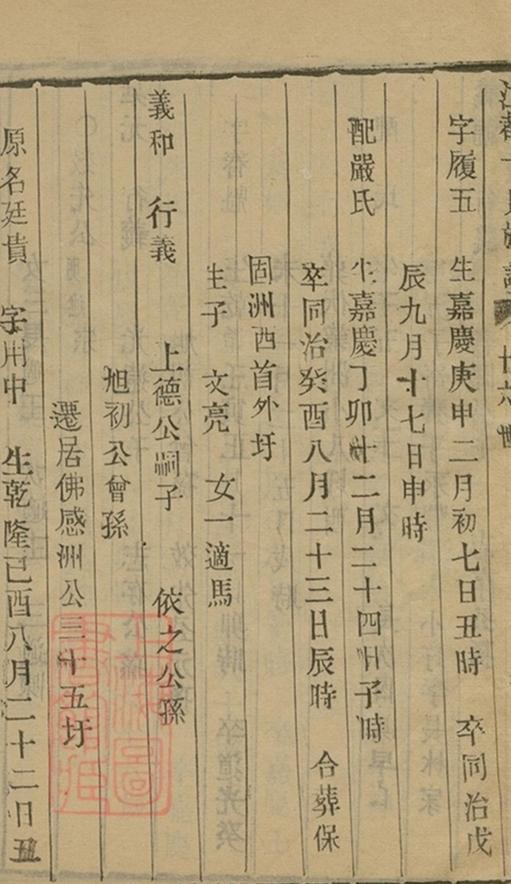 字履五 生嘉慶庚申二月初七日丑時 卒同治戊
辰九月十七日申時
配嚴氏 生嘉慶丁卯十二月二十四日子時
卒同治癸酉八月二十三日辰時 合葬保
固洲西首外圩
生子 文亮 女一適馬
義和 行義 上德公嗣子 依之公孫
旭初公曾孫
遷居佛感洲公三十五圩
原名廷貴 字用中 生乾隆己酉八月二十二日丑